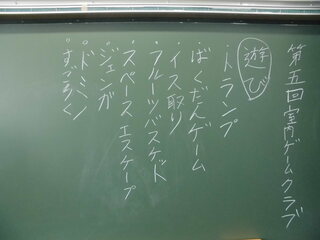 第五回室内ゲームクラブ
遊び
・トランプ
・ばくだんゲーム
・イス取り
・フルーツバスケット
・スペースエスケープ
・ジェンガ
・ドミノ
・すごろく